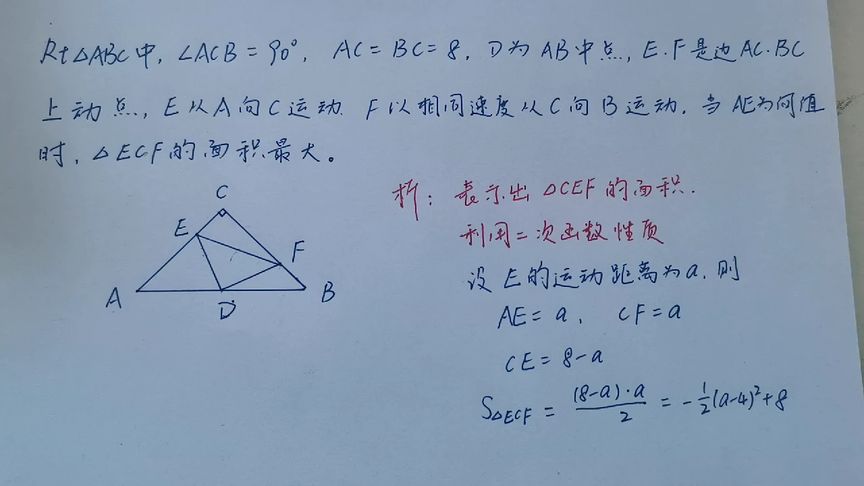 Rt△ABC中, ∠ACB=90°, AC=BC=8, D为AB中点, E.F是边AC.BC
上动点, E从A向C运动 F以相同速度从C向B运动, 当AE为何值
时, △ECF的面积最大。
析: 表示出△CEF的面积.
利用二次函数性质
设E的运动距离为a, 则
AE=a, CF=a
CE=8-a
S△ECF = (8-a)·a/2 = -1/2(a-4)²+8
C
E
F
A
D
B